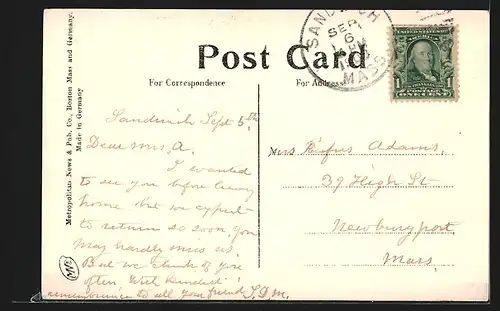 SANDWICH
SEP
6
MASS
UNITED STATES OF AMERICA
POSTAGE ONE CENT
Post Card
For Correspondence
For Address
Metropolitan News & Pub. Co., Boston Mass and Germany.
Made in Germany
Sandwich Sept 5th
Dear Mrs. A.
I wanted
to see you before leaving
home but we expect
to return so soon, you
may hardly miss us.
But we think of you
often. With kindest
remembrance to all your friend S.D.M.
Mrs Rufus Adams,
39 High St
Newburyport,
Mass.